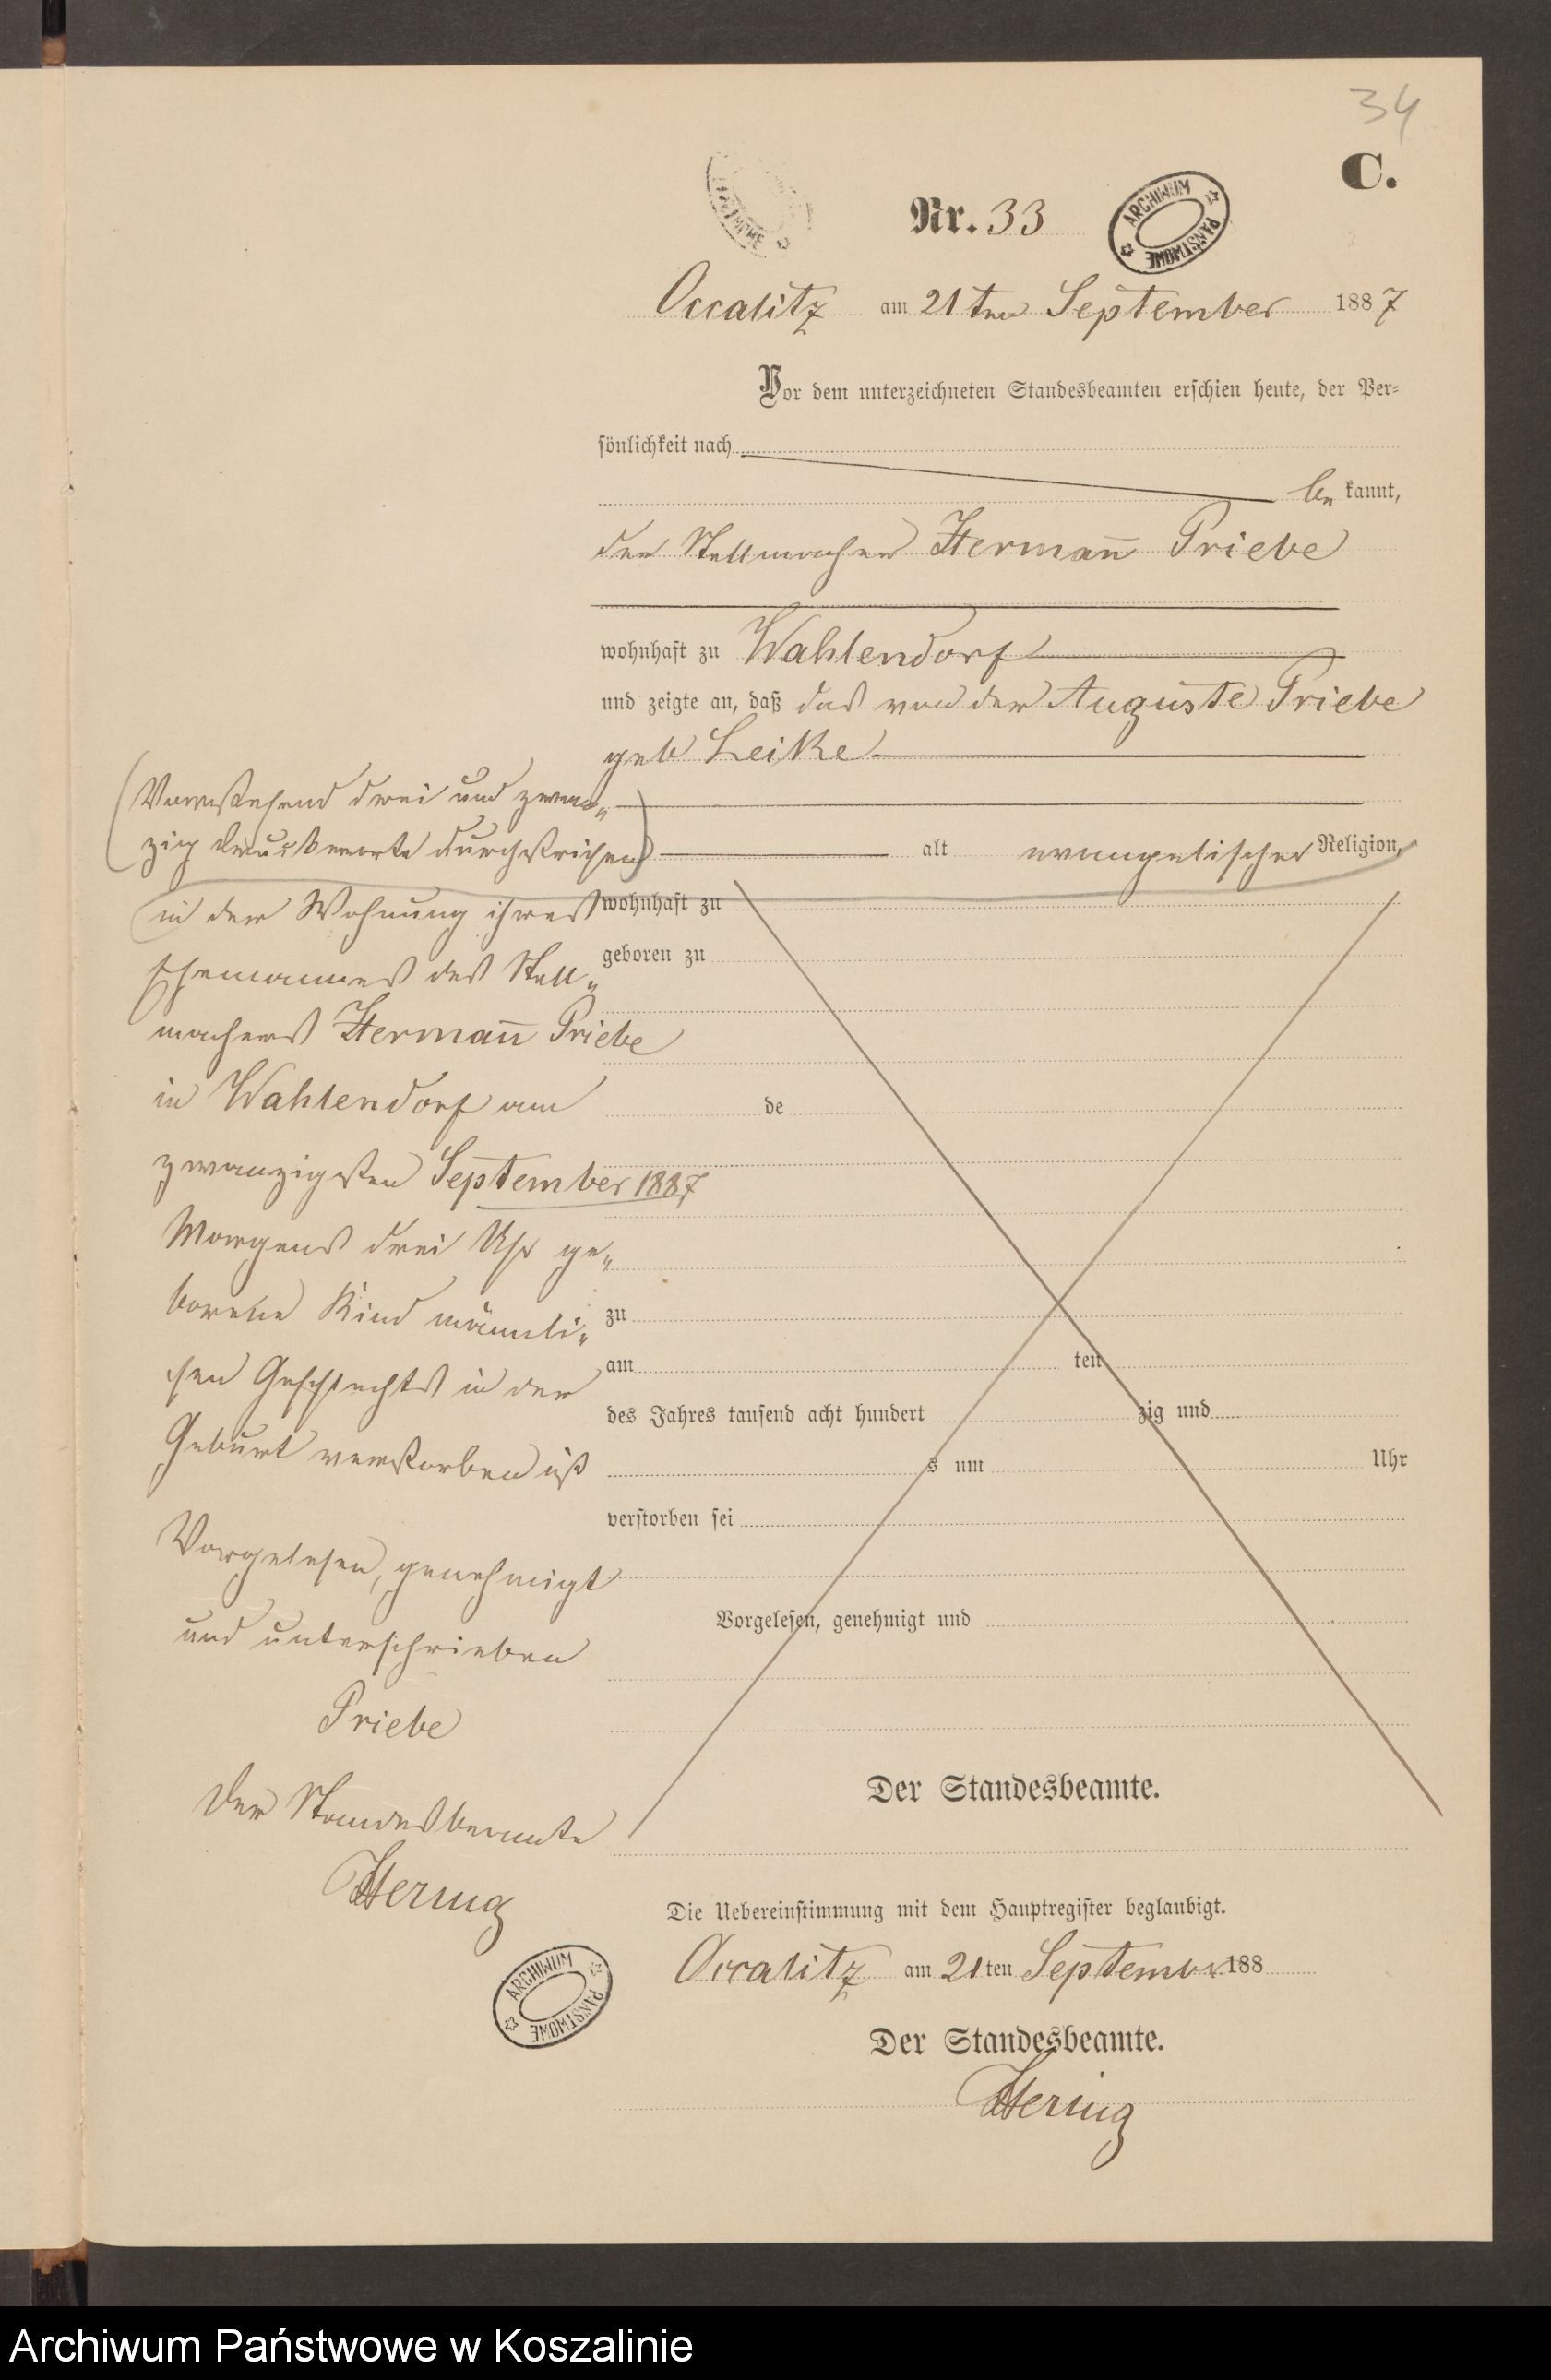 34
C.
Nr. 33
ARCHIWUM PAŃSTWOWE
Occalitz am 21ten September 1887
Vor dem unterzeichneten Standesbeamten erschien heute, der Per-
sönlichkeit nach
be kannt,
der Stellmacher Hermann Priebe
wohnhaft zu Wahlendorf
und zeigte an, daß das von der Auguste Priebe
geb Leike
(Vorstehend drei und zwan-
zig Druckworte durchstrichen)
alt evangelischer Religion,
in der Wohnung ihres
Ehemannes des Stell-
machers Hermann Priebe
in Wahlendorf am
zwanzigsten September 1887
Morgens drei Uhr ge-
borene Kind männli-
chen Geschlechts in der
Geburt verstorben ist
Vorgelesen, genehmigt
und unterschrieben
Priebe
Der Standesbeamte
Hering
wohnhaft zu
geboren zu
de
zu
am ten
des Jahres tausend acht hundert zig und
s um Uhr
verstorben sei
Vorgelesen, genehmigt und
Der Standesbeamte.
Die Uebereinstimmung mit dem Hauptregister beglaubigt.
ARCHIWUM PAŃSTWOWE
Occalitz am 21ten September 188
Der Standesbeamte.
Hering
Archiwum Państwowe w Koszalinie